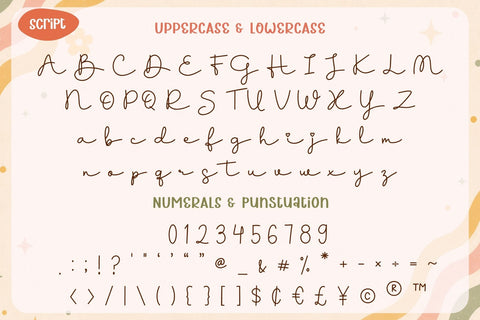 SCRIPT
UPPERCASE & LOWERCASE
A B C D E F G H I J K L M
N O P Q R S T U V W X Y Z
a b c d e f g h i j k l m
n o p q r s t u v w x y z
NUMERALS & PUNSTUATION
0 1 2 3 4 5 6 7 8 9
. : ; ! ? ' " ‘ ’ “ ” @ _ & # % * + - × ÷ = ~
< > / | \ ( ) { } [ ] $ ¢ € £ ¥ © ® ™